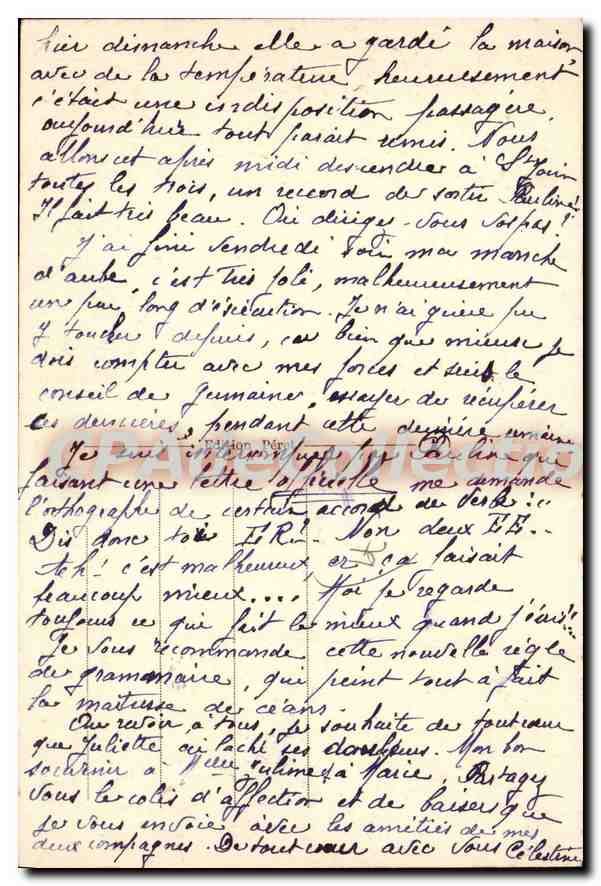 hier dimanche elle a gardé la maison
avec de la température heureusement
c'était une indisposition passagère,
aujourd'hui tout parait remis. Nous
allons cet après midi descendre à St Jouin
toutes les trois, un record de sortie Pauline!
Il fait très beau. Où dirigez-vous vos pas?
J'ai fini vendredi soir ma manche
d'aube, c'est très joli, malheureusement
un peu long d'exécution. Je n'ai guère pu
y toucher depuis, car bien que mieux je
dois compter avec mes forces et suis le
conseil de Germaine, essayer de récupérer
ces dernières, pendant cette dernière semaine
Edition Péret
Je suis interrompue par Pauline qui
faisant une lettre officielle me demande
l'orthographe de certain accord de verbe :
Dis donc toi ER! - Non deux EE..
Ach! c'est malheureux, er ça faisait
beaucoup mieux.... Moi je regarde
toujours ce qui fait le mieux quand j'écris!
Je vous recommande cette nouvelle règle
de grammaire, qui peint tout à fait
la maîtresse de céans.
Au revoir à tous, je souhaite de tout cœur
que Juliette ait laché ses douleurs. Mon bon
souvenir à Melle Pauline à Marie, Partagez
vous le colis d'affection et de baisers que
je vous envoie avec les amitiés de mes
deux compagnes. De tout cœur avec vous Célestine